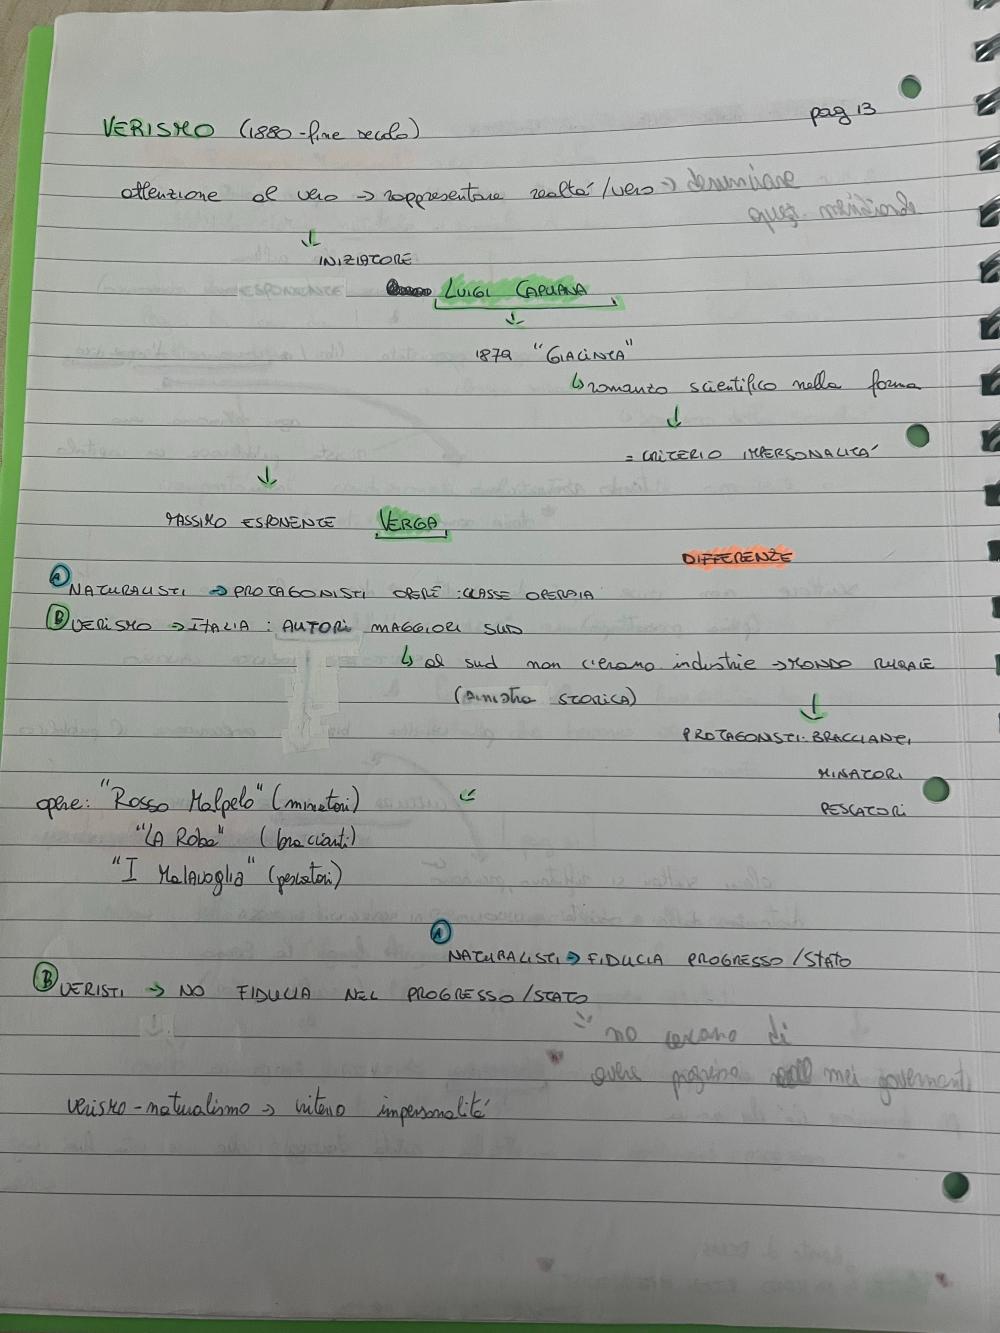 pag 13
VERISMO (1880-fine secolo)
attenzione al vero → rappresentare realtá/vero → denunciare
↓
INIZIATORE
LUIGI CAPUANA
↓
1879 "GIACINTA"
↳ romanzo scientifico nella forma
↓
= CRITERIO IMPERSONALITÁ
↓
MASSIMO ESPONENTE VERGA
DIFFERENZE
A NATURALISTI → PROTAGONISTI OPERE : CLASSE OPERAIA
B VERISMO → ITALIA : AUTORI MAGGIORI SUD
↳ al sud non c'erano industrie → MONDO RURALE
(sinistra STORICA)
↓
PROTAGONISTI: BRACCIANTI,
MINATORI
PESCATORI
opere: "Rosso Malpelo" (minatori)
"LA Roba" (braccianti)
"I Malavoglia" (pescatori)
A NATURALISTI → FIDUCIA PROGRESSO/STATO
B VERISTI → NO FIDUCIA NEL PROGRESSO/STATO
no cerano di
avere nei governanti
verismo-naturalismo → criterio impersonalitá